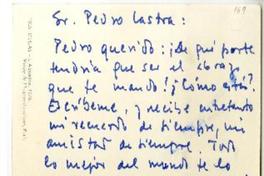 169
Sr. Pedro Lastra:
Pedro querido: ¡De qué porte
tendría que ser el abrazo
que te mando! ¿Cómo estás?
Escríbeme, y recibe entretanto
mi recuerdo de siempre, mi
amistad de siempre. Todo
lo mejor del mundo te lo